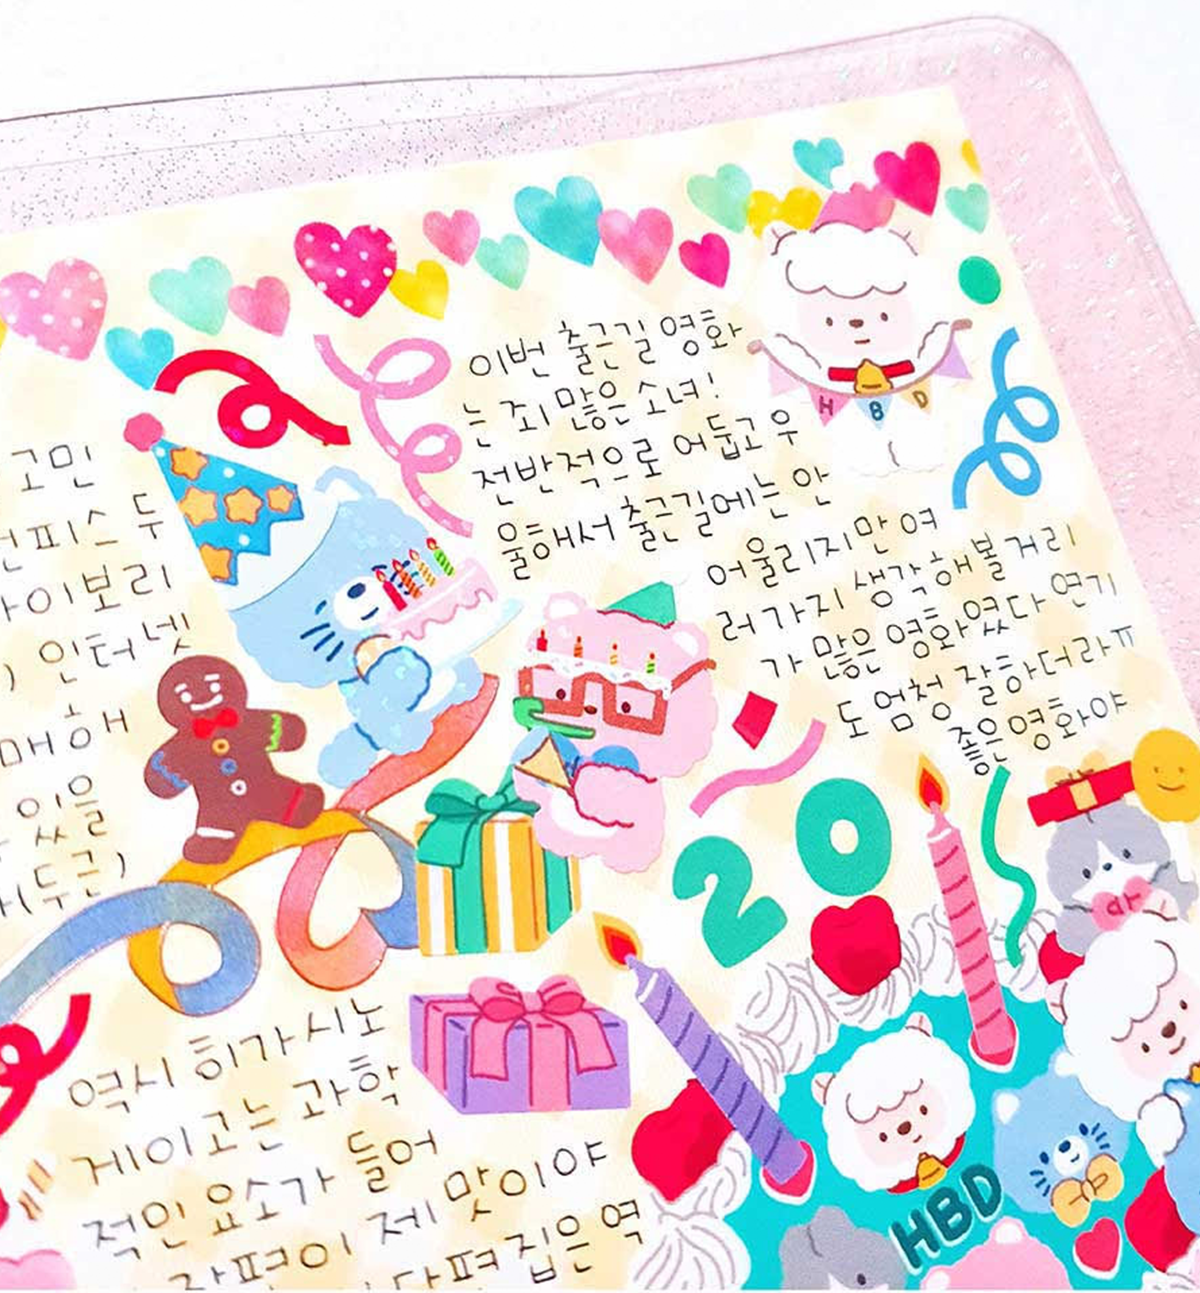 이번 출근길 영화
는 죄 많은 소녀!
전반적으로 어둡고 우
울해서 출근길에는 안
어울리지만 여
러가지 생각해볼거리
가 많은 영화였다 연기
도 엄청 잘하더라ㅠ
좋은영화야
H B D
고민
피스 두
아이보리
) 인터넷
매해
있을
(두근)
20
역시 히가시노
게이고는 과학
적인 요소가 들어
제 맛이야
집은 역
HBD